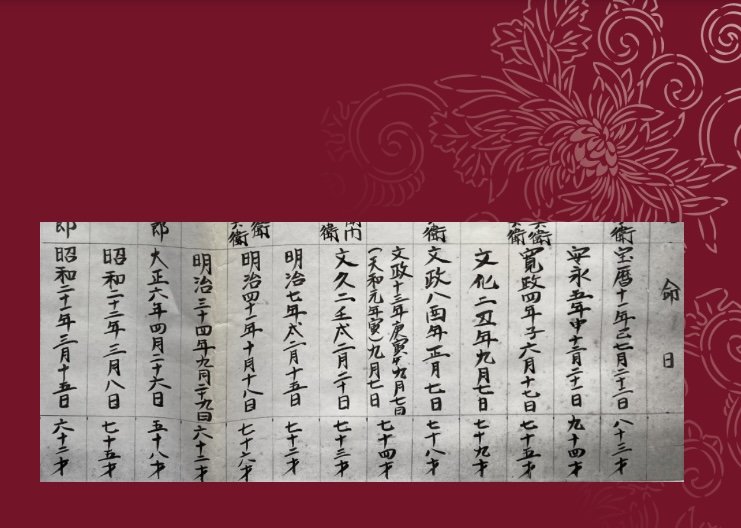 命日
衛 宝暦十一年己七月二十二日 八十三才
安永五年申十二月二十一日 九十四才
衛 衛 寛政四年子六月十七日 七十五才
文化二丑年九月七日 七十九才
衛 文政八酉年正月七日 七十八才
文政十三年庚寅年九月七日
(天和元年寅)九月七日 七十四才
衛 文久二壬戌二月二十日 七十三才
明治七年戌二月十五日 七十二才
衛 衛 明治四十一年十月十八日 七十六才
明治三十四年九月二十九日 六十二才
郎 大正六年四月二十六日 五十八才
昭和二十二年三月八日 七十五才
郎 昭和二十一年三月十五日 六十二才